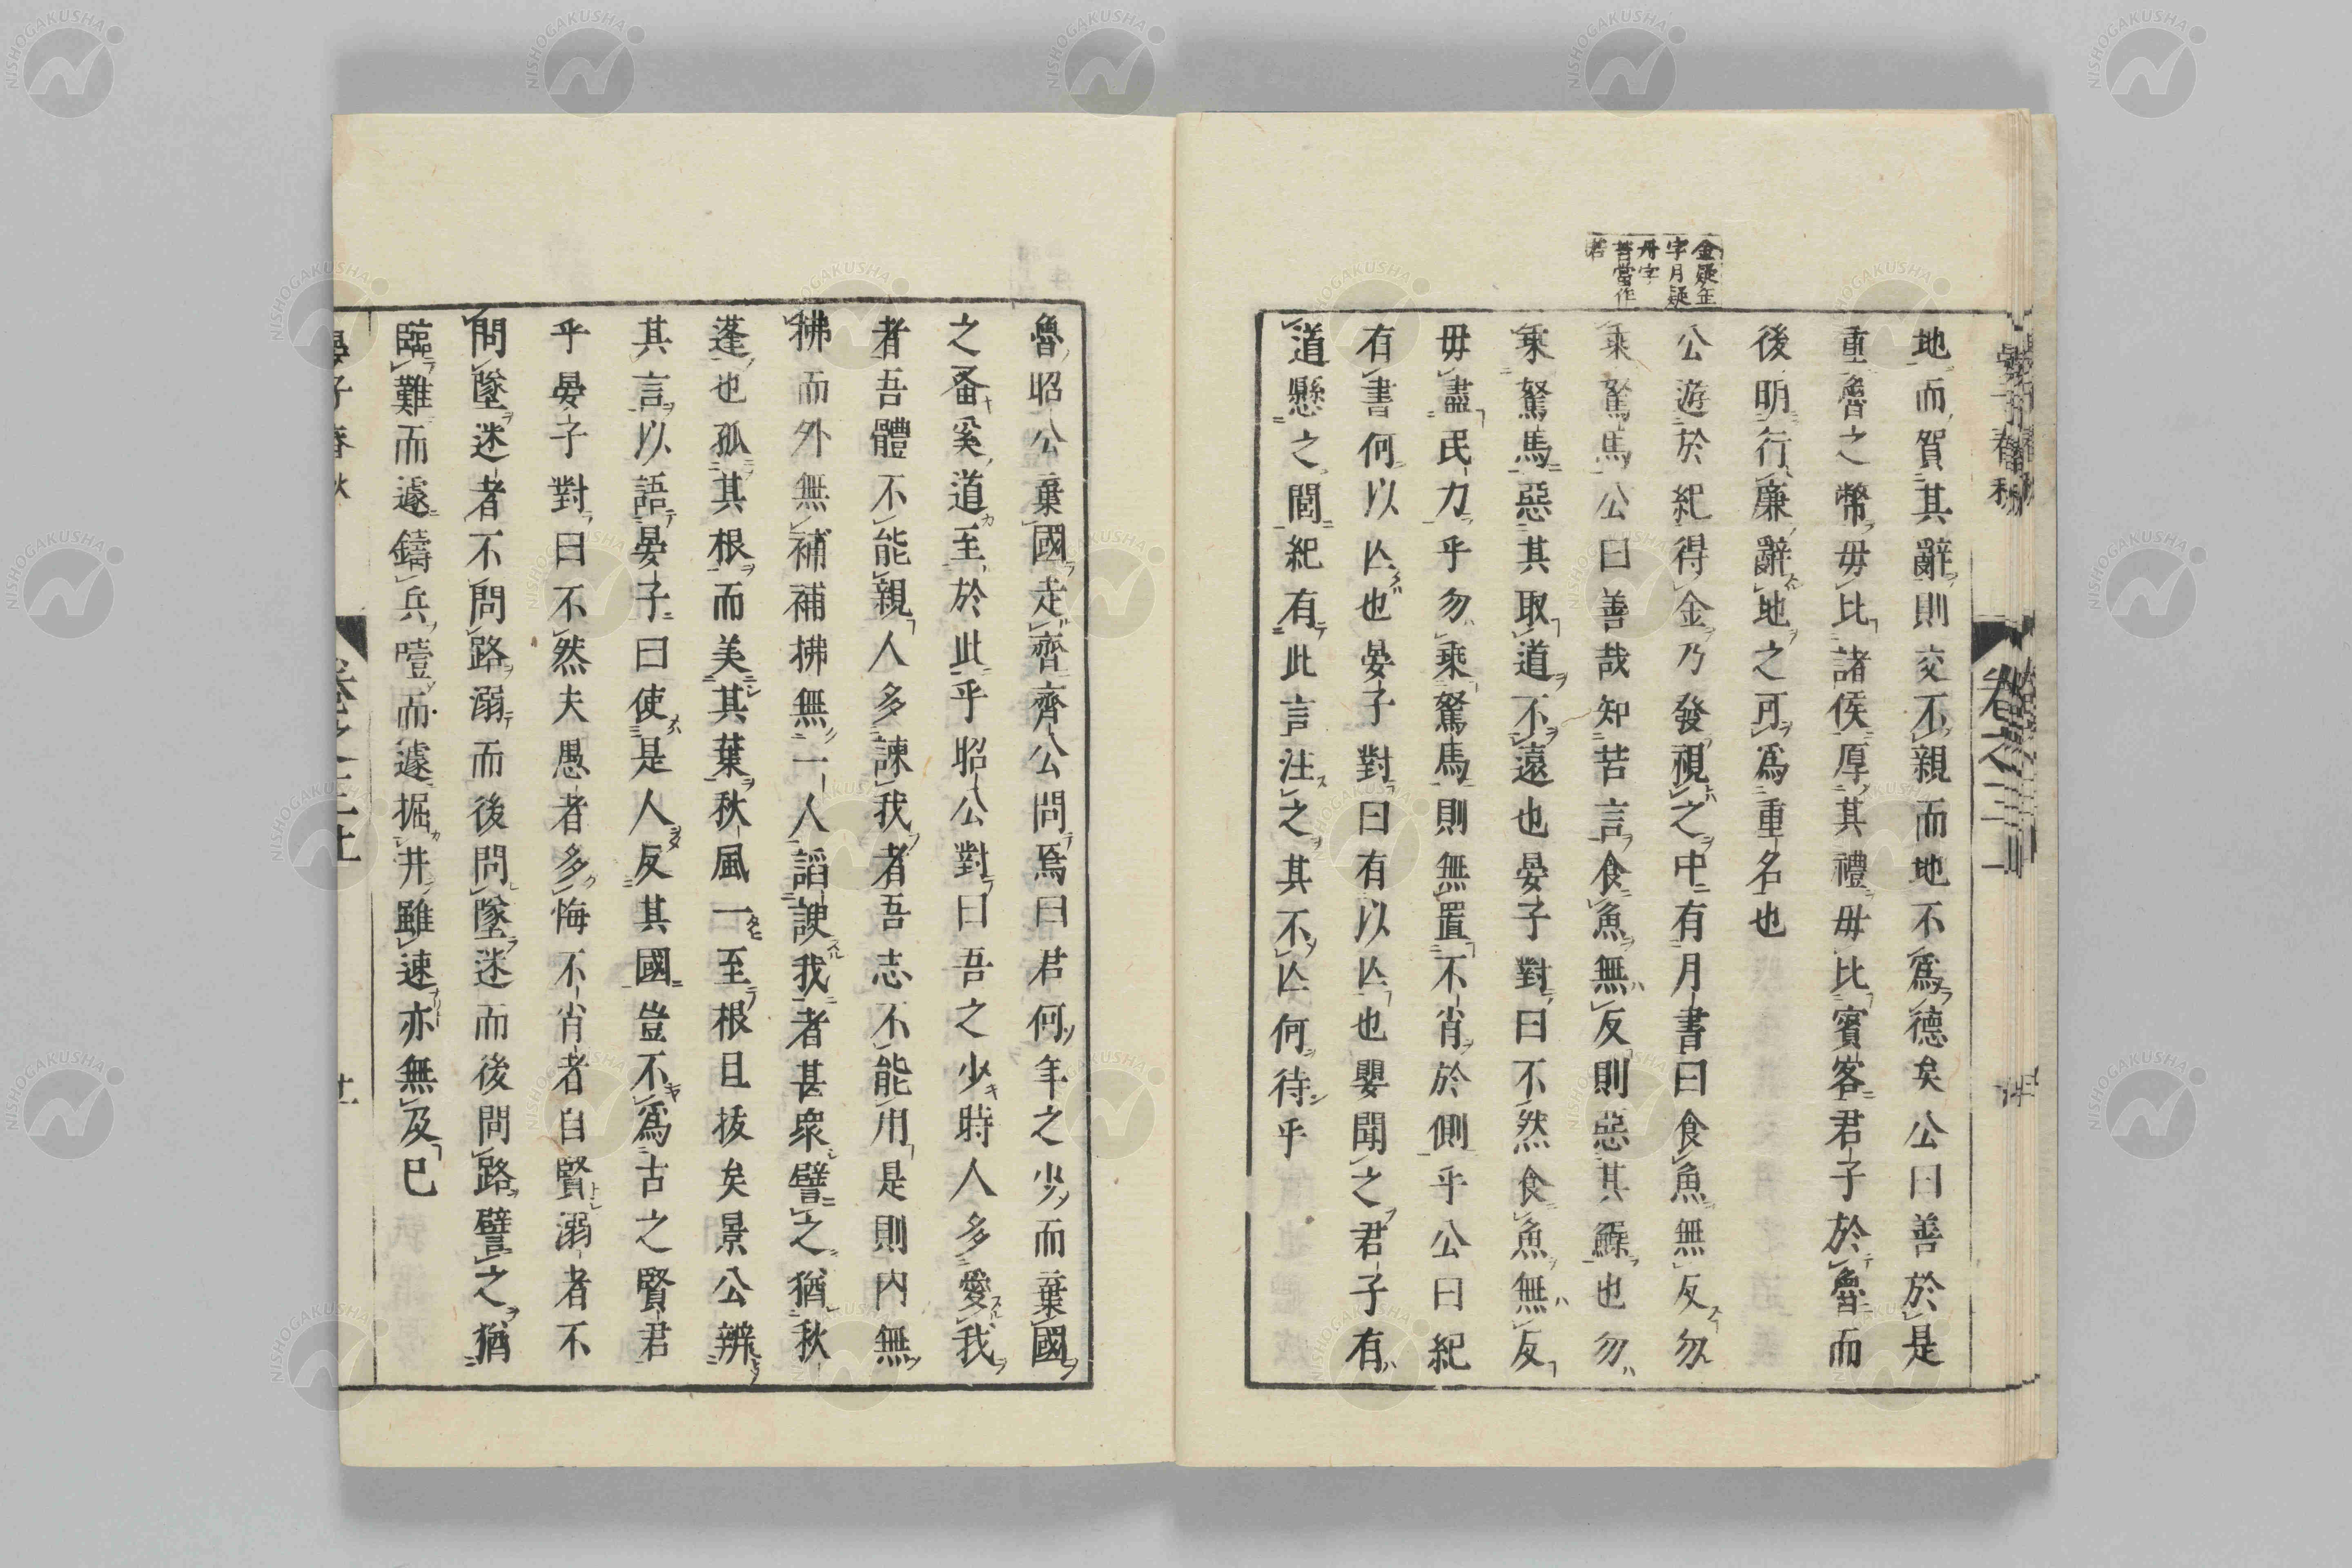 金疑缶
字月疑
丹字
苦當作
若
地而賀其辭則交不親而地不爲德矣公曰善於是
重魯之幣毋比諸侯厚其禮毋比賓客君子於魯而
後明行廉辭地之可爲重名也
公遊於紀得金乃發視之中有月書曰食魚無反勿
乘駑馬公曰善哉知苦言食魚無反則惡其鱢也勿
乘駑馬惡其取道不遠也晏子對曰不然食魚無反
毋盡民力乎勿乘駑馬則無置不肖於側乎公曰紀
有書何以亾也晏子對曰有以亾也嬰聞之君子有
道懸之閭紀有此言注之其不亾何待乎
魯昭公棄國走齊齊公問焉曰君何年之少而棄國
之蚤奚道至於此乎昭公對曰吾之少時人多愛我
者吾體不能親人多諫我者吾志不能用是則内無
拂而外無補補拂無一人諂諛我者甚衆譬之猶秋
蓬也孤其根而美其葉秋風一至根且拔矣景公辨
其言以語晏子曰使是人反其國豈不爲古之賢君
乎晏子對曰不然夫愚者多悔不肖者自賢溺者不
問墜迷者不問路溺而後問墜迷而後問路譬之猶
臨難而遽鑄兵噎而遽掘井雖速亦無及已